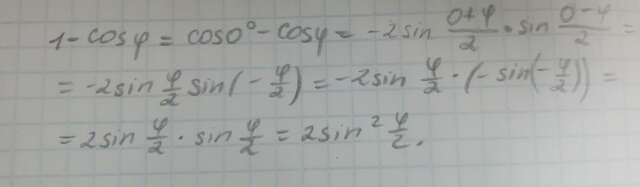 1 - cos φ = cos 0° - cos φ = -2 sin (0+φ)/2 · sin (0-φ)/2 =
= -2 sin φ/2 sin(-φ/2) = -2 sin φ/2 · (-sin(-φ/2)) =
= 2 sin φ/2 · sin φ/2 = 2 sin² φ/2.